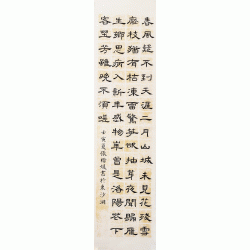 春風疑不到天涯二月山城未見花殘雪
壓枝猶有桔凍雷驚笋欲抽芽夜聞歸雁
生鄉思病入新年感物華曾是洛陽花下
客野芳雖晚不須嗟
壬寅夏張書於東沙湖